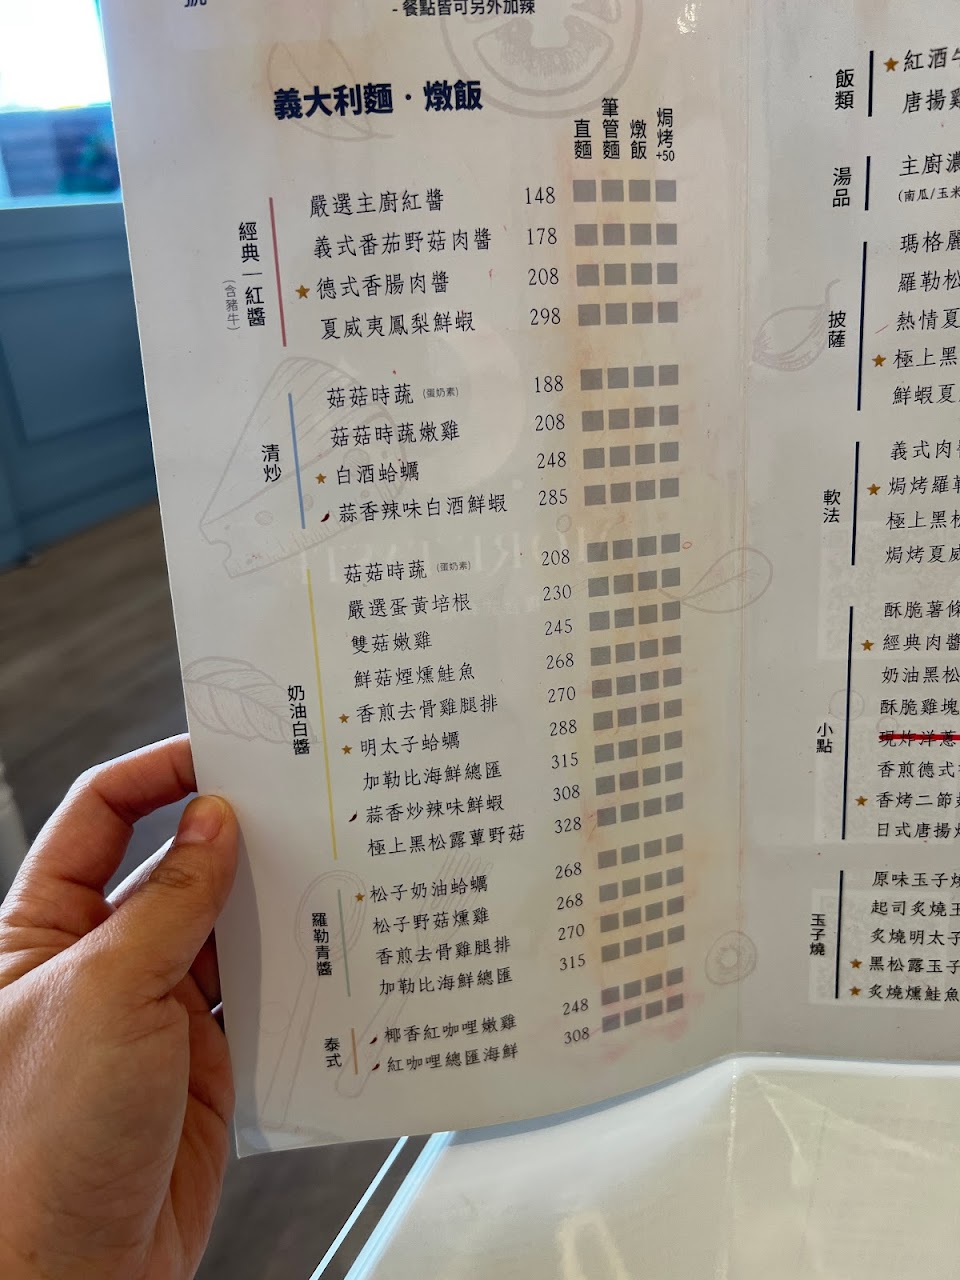 - 餐點皆可另外加辣
義大利麵・燉飯
直麵 筆管麵 燉飯 焗烤+50
經典｜紅醬
(含豬牛)
嚴選主廚紅醬 148
義式番茄野菇肉醬 178
★ 德式香腸肉醬 208
夏威夷鳳梨鮮蝦 298
清炒
菇菇時蔬 (蛋奶素) 188
菇菇時蔬嫩雞 208
★ 白酒蛤蠣 248
蒜香辣味白酒鮮蝦 285
奶油白醬
菇菇時蔬 (蛋奶素) 208
嚴選蛋黃培根 230
雙菇嫩雞 245
鮮菇煙燻鮭魚 268
★ 香煎去骨雞腿排 270
★ 明太子蛤蠣 288
加勒比海鮮總匯 315
蒜香炒辣味鮮蝦 308
極上黑松露蕈野菇 328
羅勒青醬
★ 松子奶油蛤蠣 268
松子野菇燻雞 268
香煎去骨雞腿排 270
加勒比海鮮總匯 315
泰式
椰香紅咖哩嫩雞 248
紅咖哩總匯海鮮 308
飯類
★ 紅酒牛
唐揚雞
湯品
主廚濃
(南瓜/玉米
披薩
瑪格麗
羅勒松
熱情夏
★ 極上黑
鮮蝦夏
軟法
義式肉醬
★ 焗烤羅勒
極上黑松
焗烤夏威
小點
酥脆薯條
★ 經典肉醬
奶油黑松
酥脆雞塊
現炸洋蔥
香煎德式
★ 香烤二節
日式唐揚
玉子燒
原味玉子燒
起司炙燒玉
炙燒明太子
★ 黑松露玉子
★ 炙燒燻鮭魚